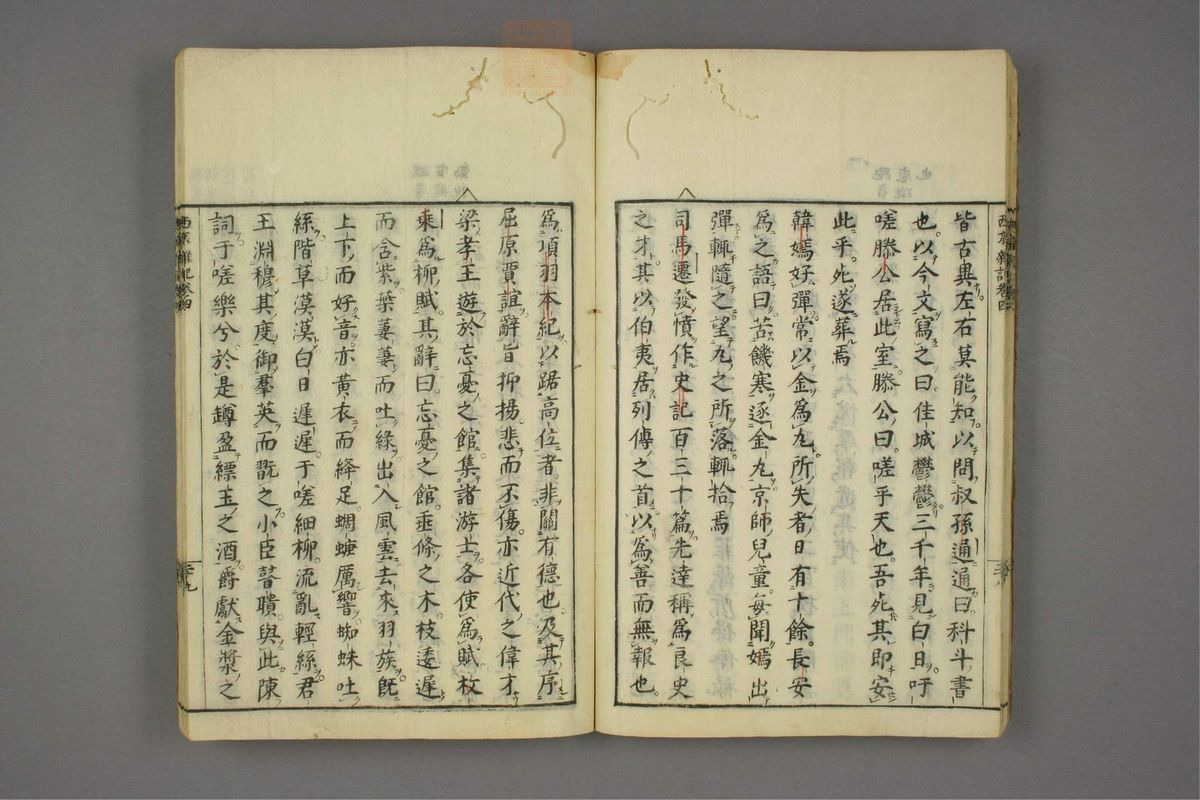 皆古異左右莫能知以問叔孫通通曰科斗書
也以今文寫之曰佳城鬱鬱三千年見白日吁
嗟滕公居此室滕公曰嗟乎天也吾死其即安
此乎死遂葬焉
韓嫣好彈常以金爲丸所失者日有十餘長安
爲之語曰苦饑寒逐金丸京師兒童每聞嫣出
彈輒隨之望丸之所落輒拾焉
司馬遷發憤作史記百三十篇先達稱爲良史
之才其以伯夷居列傳之首以爲善而無報也
爲項羽本紀以踞高位者非關有德也及其序
屈原賈誼辭旨抑揚悲而不傷亦近代之偉才
梁孝王遊於忘憂之館集諸游士各使爲賦枚
乘爲柳賦其辭曰忘憂之館垂條之木枝逶遲
而含紫葉萋萋而吐綠出入風雲去來羽族既
上下而好音亦黃衣而絳足蜩螗厲響蜘蛛吐
絲階草漠漠白日遲遲于嗟細柳流亂輕絲君
王淵穆其度御羣英而翫之小臣瞽聵與此陳
詞于嗟樂兮於是罇盈縹玉之酒爵獻金漿之
西京雜記卷四